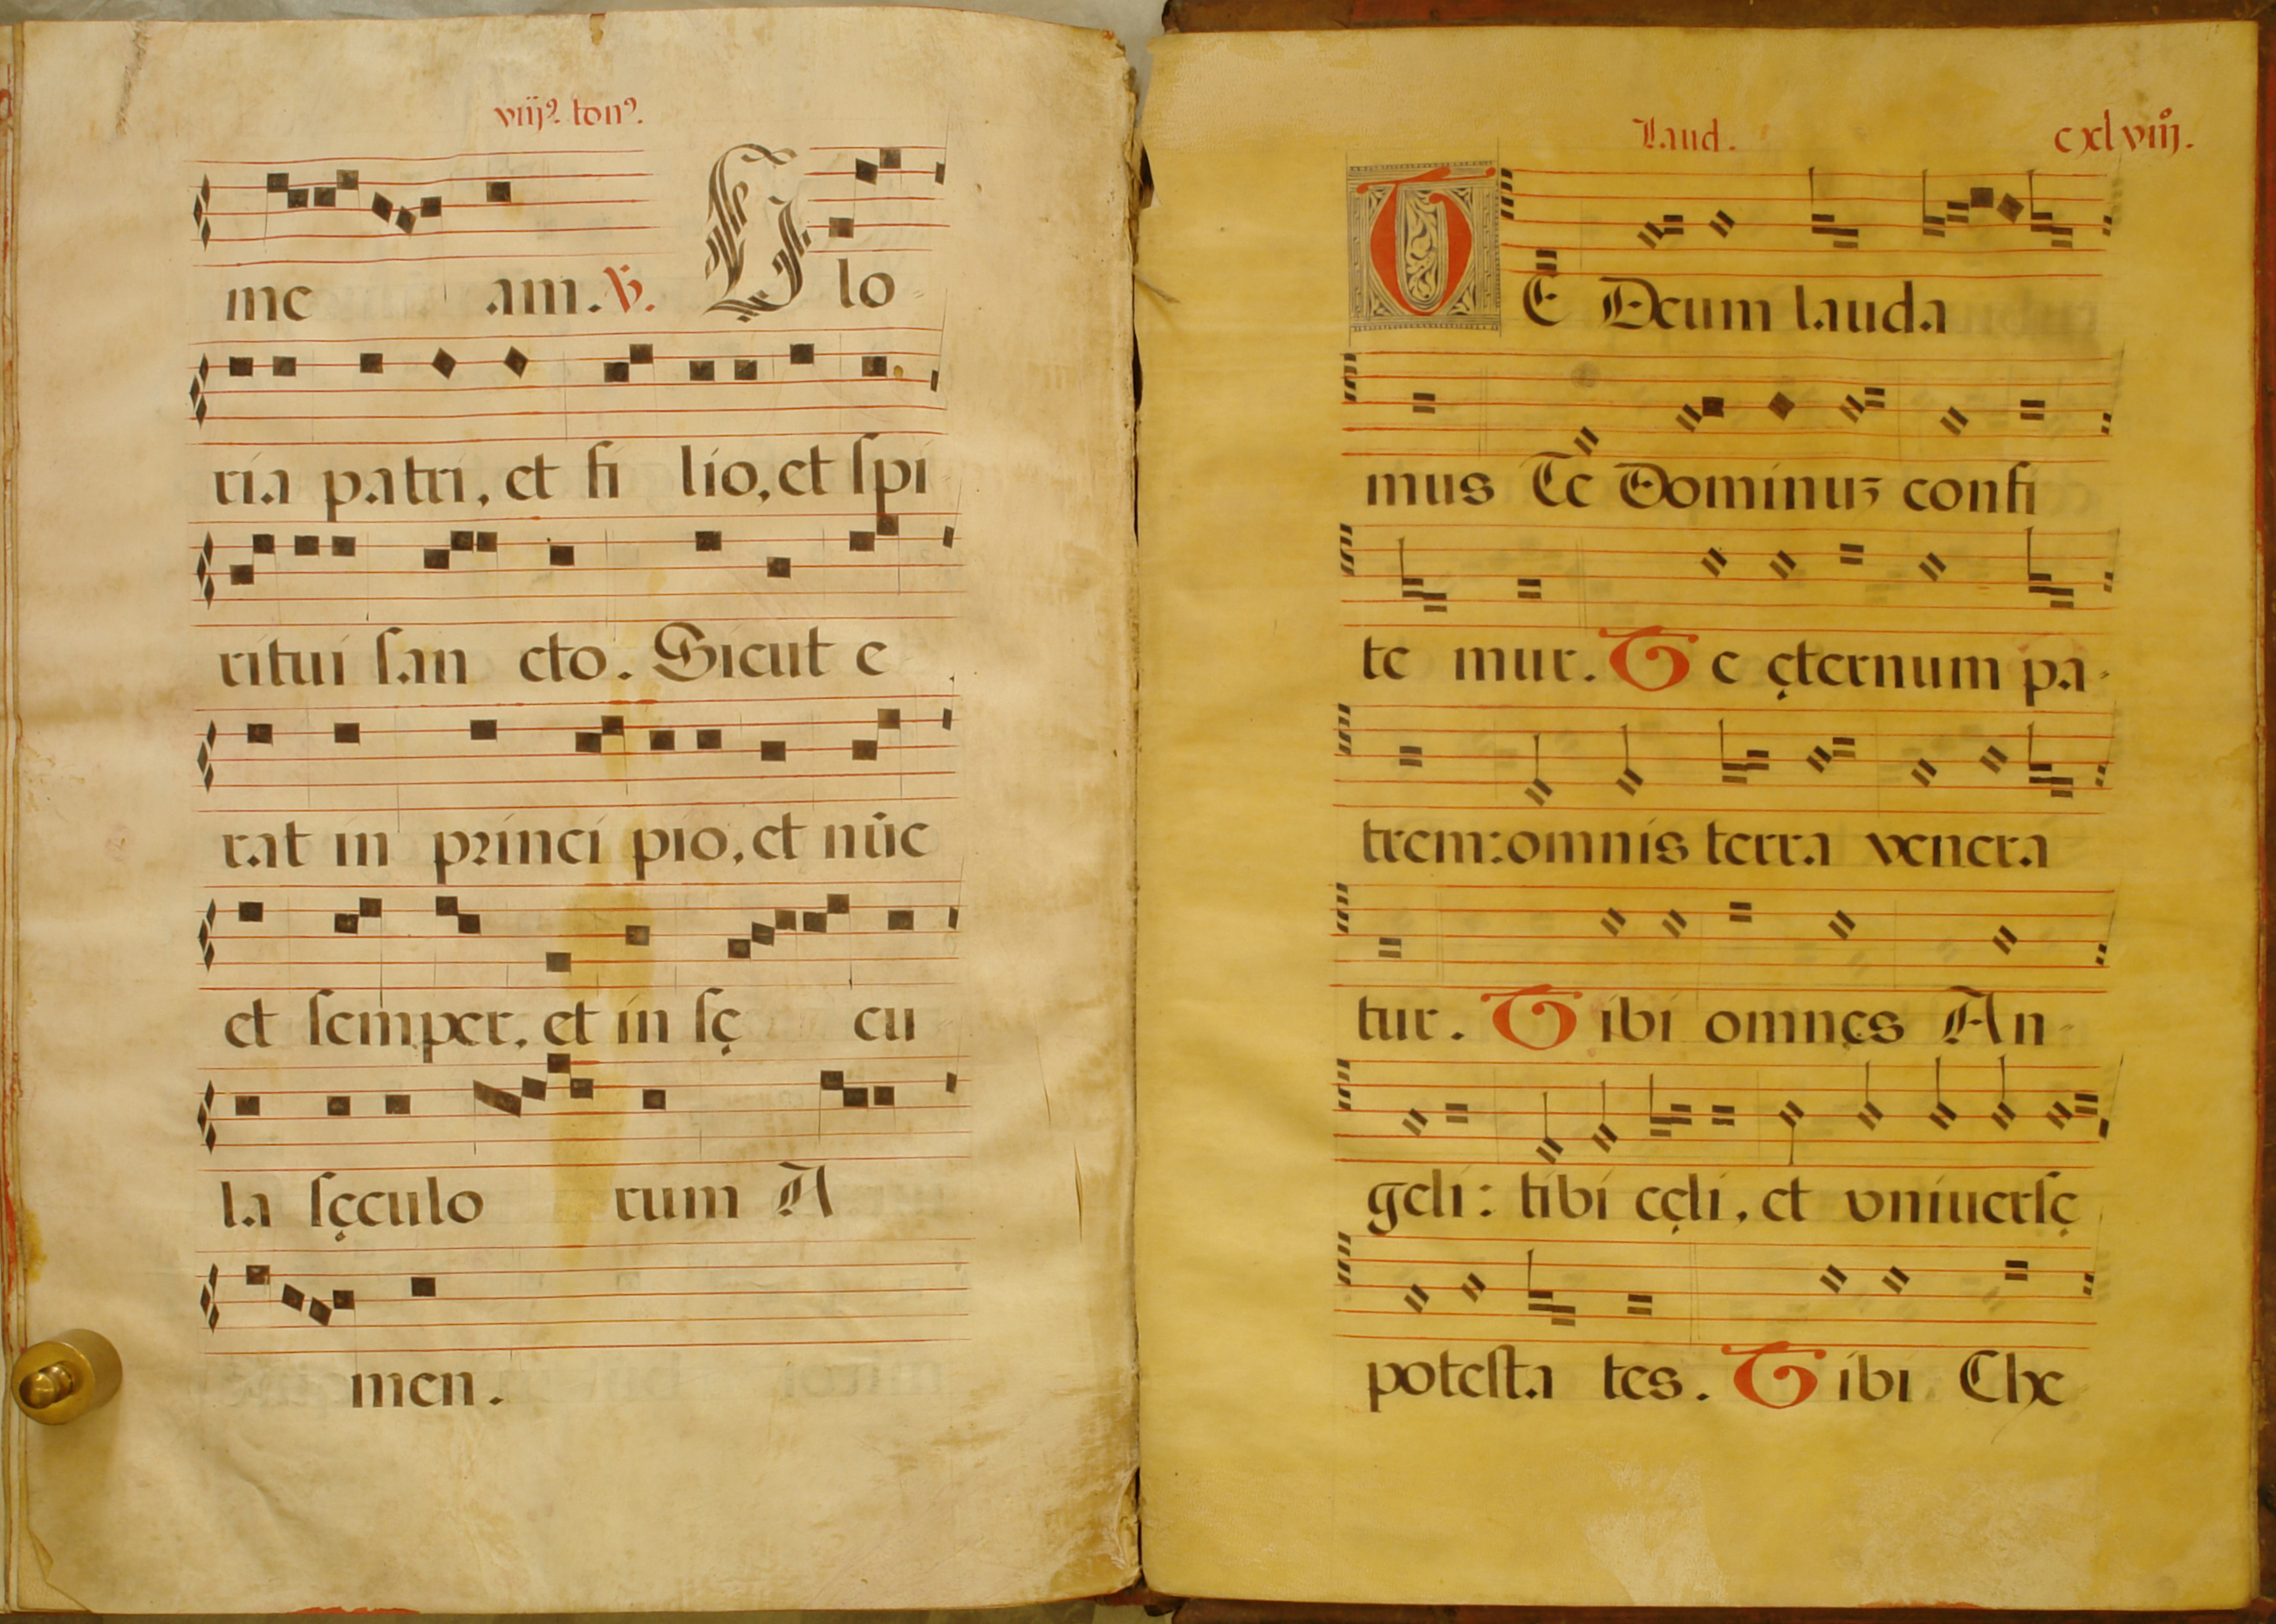 viij⁹. ton⁹.
me am. ℣. Glo
ria patri, et fi lio, et ſpi
ritui ſan cto. Sicut e
rat in princi pio, et nūc
et ſemper, et in ſę cu
la ſęculo rum A
men.
Laud. cxlviiij.
TE Deum lauda
mus Te Dominuz confi
te mur. Te ęternum pa-
trem: omnis terra venera
tur. Tibi omnęs An-
geli: tibi cęli, et vniuerſę
poteſta tes. Tibi Che